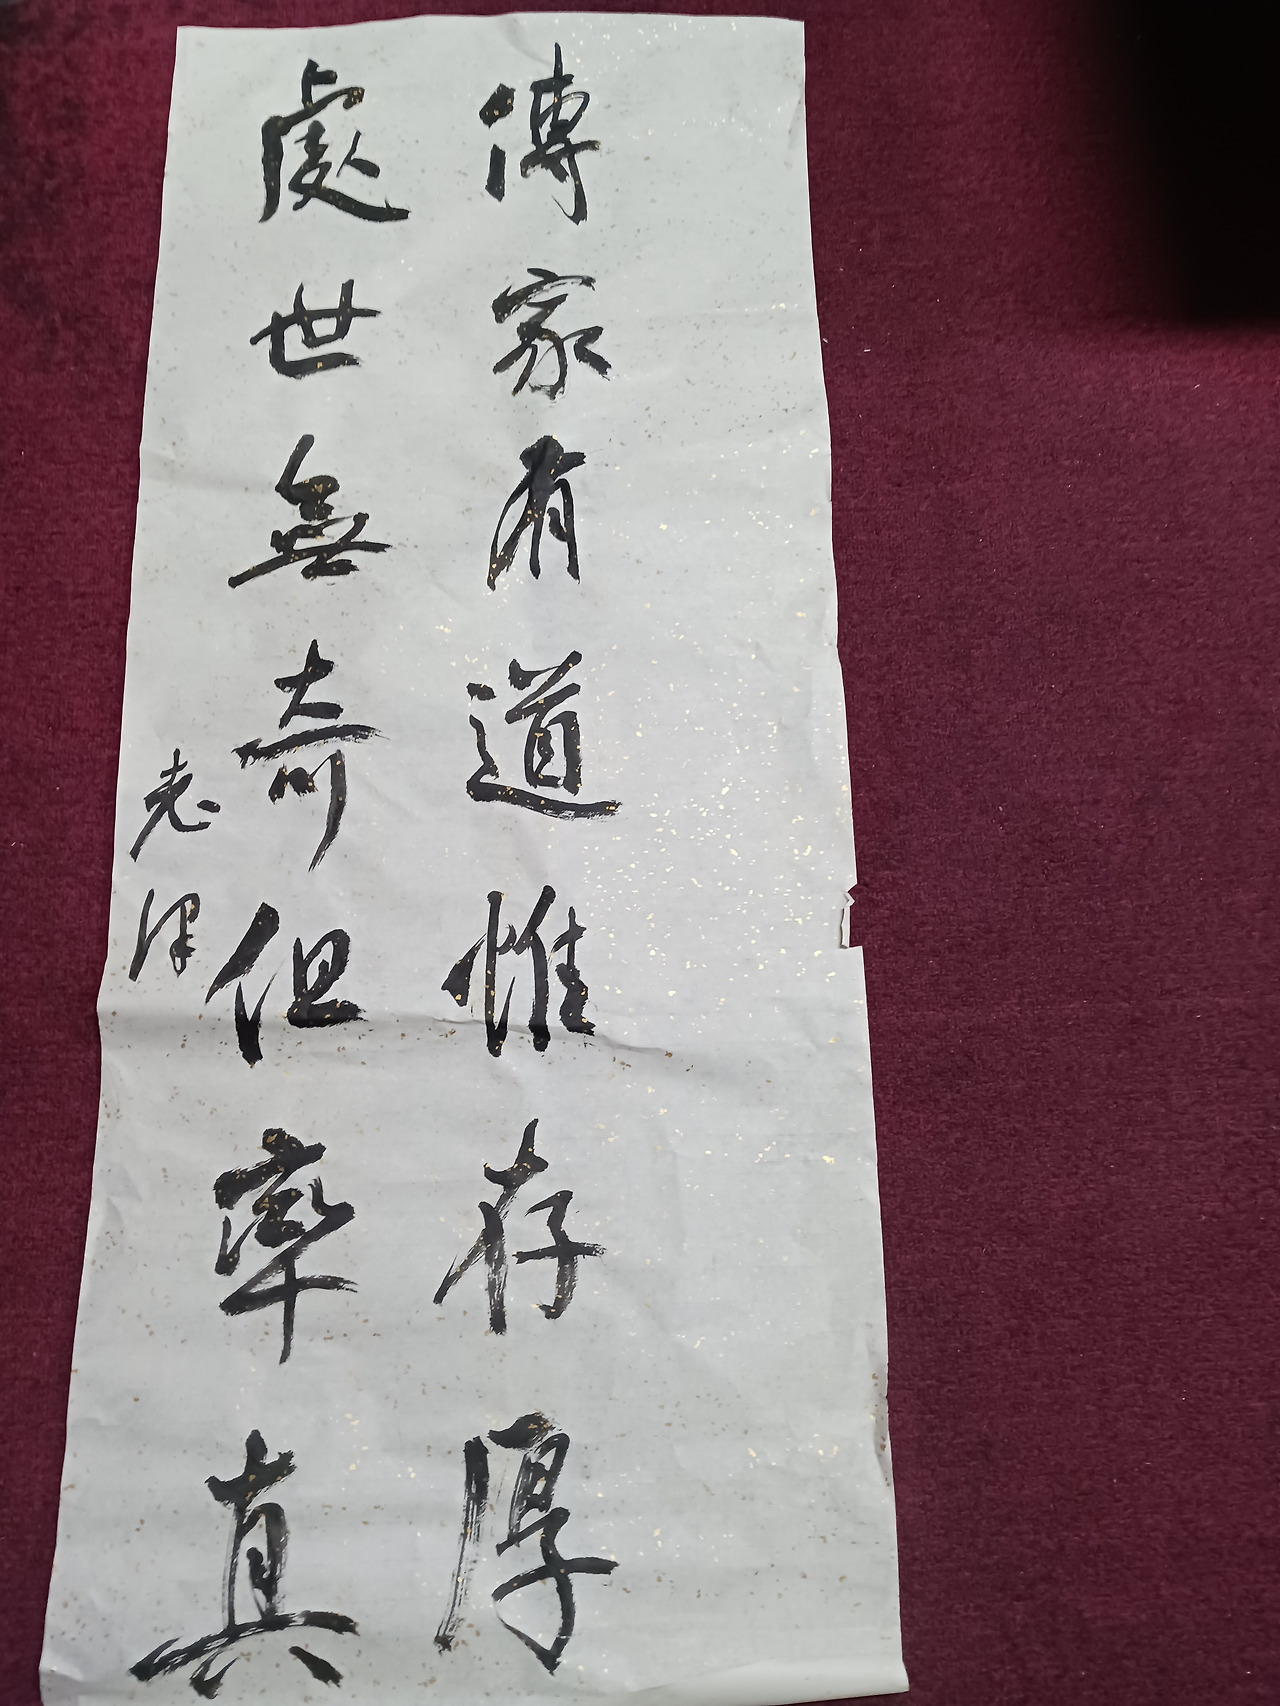 傳家有道惟存厚
處世無奇但率真
志澤